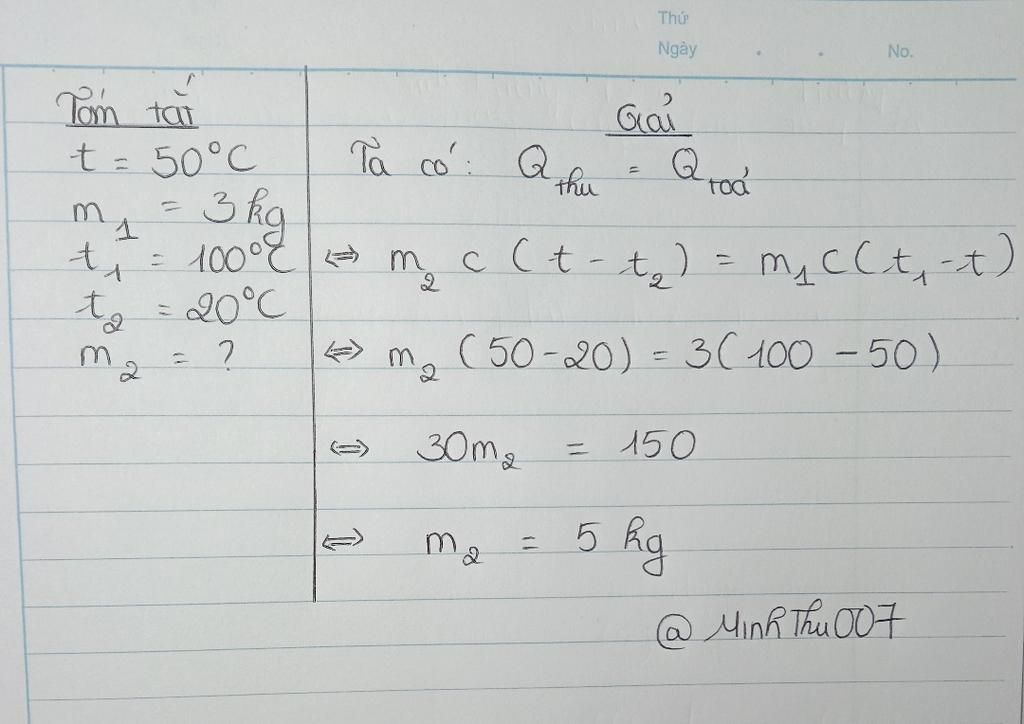 Thứ
Ngày . . No.
Tóm tắt
t = 50°C
m₁ = 3 kg
t₁ = 100°C
t₂ = 20°C
m₂ = ?
Giải
Ta có: Q thu = Q toả
⇔ m₂ c (t - t₂) = m₁ c (t₁ - t)
⇔ m₂ (50 - 20) = 3(100 - 50)
⇔ 30m₂ = 150
⇔ m₂ = 5 kg
@ MinhThu007